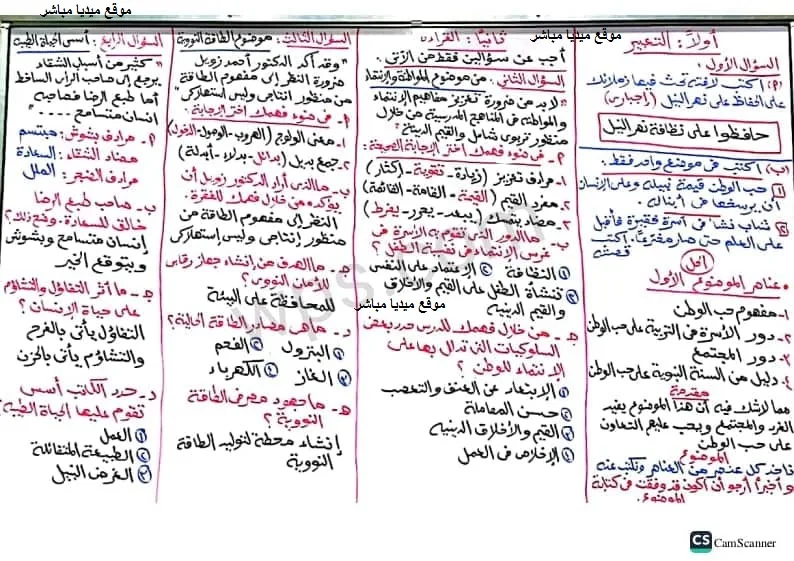 موقع ميديا مباشر
موقع ميديا مباشر
موقع ميديا مباشر
أولاً: التعبير
السؤال الأول:
(٩) اكتب لافتة تحث فيها زملائك
على الحفاظ على نهر النيل (إجباري)
حافظوا على نظافة نهر النيل
(ب) اكتب في موضوع واحد فقط.
١ حب الوطن قيمة نبيلة وعلى الإنسان
أن يرسخها في أبنائه.
٢ شاب نشأ في أسرة فقيرة فأقبل
على العلم حتى صار مخترعًا. اكتب
قصته
الحل
* عناصر الموضوع الأول
١- مفهوم حب الوطن
٢- دور الأسرة في التربية على حب الوطن
٣- دور المجتمع
٤- دليل من السنة النبوية على حب الوطن
مقدمة
مما لا شك فيه أن هذا الموضوع يفيد
الفرد والمجتمع ويجب عليهم التعاون
على حب الوطن
الموضوع
فأخذ كل عنصر من العناصر ونكتب عنه
وأخيراً أرجو أن أكون قد وفقت في كتابة
الموضوع.
ثانيًا: القراءة
أجب عن سؤالين فقط من الآتي.
السؤال الثاني: من موضوع المواطنة والانتماء
"لابد من ضرورة تعزيز مفاهيم الانتماء
والمواطنة في المناهج المدرسية من خلال
منظور تربوي شامل والقيم الدينية"
٩- في ضوء فهمك اختر الإجابة الصحيحة:
١- مرادف تعزيز (زيادة- تقوية- إكثار)
٢- مفرد القيم (القيمة- القامة- القائمة)
٣- مضاد يتمسك (يبعد- يحرر- يفرط)
ب- ما الدور الذي تقوم به الأسرة في
غرس الانتماء في نفسية الطفل؟
١ الثقافة ٢ الاعتماد على النفس
٣ تنشأة الطفل على القيم والأخلاق
والقيم الدينية
ج- من خلال فهمك للدرس حدد بعض
السلوكيات التي تدل بها على
الانتماء للوطن؟
١ الابتعاد عن العنف والتعصب
٢ حسن المعاملة
٣ القيم والأخلاق الدينية
٤ الإخلاص في العمل
السؤال الثالث: موضوع الطاقة النووية
"وقد أكد الدكتور أحمد زويل
ضرورة النظر إلى مفهوم الطاقة
من منظور إنتاجي وليس استهلاكي"
٩- في ضوء فهمك اختر الإجابة:
١- معنى الولوج (الهروب- الوصول- الدخول)
٢- جمع بديل (بدائل- بدلاء- أبدلة)
ب- ما الذي أراد الدكتور زويل أن
يؤكده من خلال فهمك للفقرة.
النظر إلى مفهوم الطاقة من
منظور إنتاجي وليس استهلاكي
ج- ما الهدف من إنشاء جهاز رقابي
للأمان النووي؟
للمحافظة على البيئة
د- ما هي مصادر الطاقة الحالية؟
١ البترول ٢ الفحم
٣ الغاز ٤ الكهرباء
هـ- ما جهود مصر في الطاقة
النووية؟
إنشاء محطة لتوليد الطاقة
النووية
السؤال الرابع: أسس الحياة الطيبة
"كثير من أسباب الشقاء
يرجع إلى صاحب الرأى الساخط
أما طبع الرضا فصاحبه
إنسان متسامح ....."
٩- مرادف بشوش: مبتسم
مضاد الشقاء: السعادة
مرادف الضجر: الملل
ب- صاحب طبع الرضا
خالق للسعادة. وضح ذلك؟
إنسان متسامح وبشوش
ويتوقع الخير
ج- ما أثر التفاؤل والتشاؤم
على حياة الإنسان؟
التفاؤل يأتي بالفرح
والتشاؤم يأتي بالحزن
د- حدد الكاتب أسس
تقوم عليها الحياة الطيبة:
١ العمل
٢ الطبيعة المتفائلة
٣ الغرض النبيل
wps.com
CS CamScanner